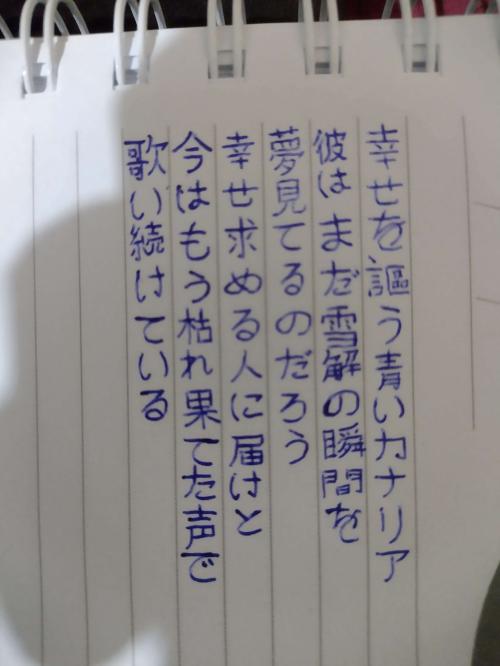 幸せを謳う青いカナリア
彼はまだ雪解の瞬間を
夢見てるのだろう
幸せ求める人に届けと
今はもう枯れ果てた声で
歌い続けている